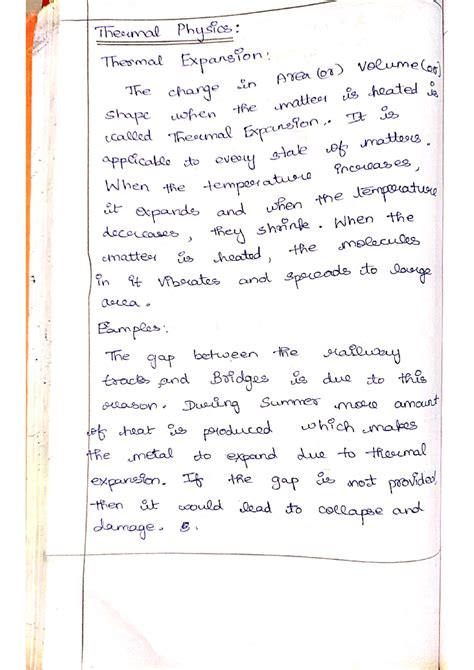 Thermal Physics:
Thermal Expansion:
The change in Area (or) Volume (or)
shape when the matter is heated is
called Thermal Expansion. It is
applicable to every state of matters.
When the temperature increases,
it expands and when the temperature
decreases, they shrink. When the
matter is heated, the molecules
in it vibrates and spreads to large
area.
Examples:
The gap between the railway
tracks and Bridges is due to this
reason. During Summer more amount
of heat is produced which makes
the metal to expand due to thermal
expansion. If the gap is not provided,
then it would lead to collapse and
damage.